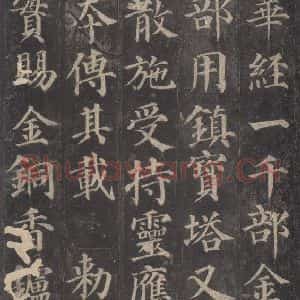 華經一千部金
部用鎮寶塔又
散施受持靈應
本傳其載 敕
實賜金銅香鑪
Shufawang.Cn